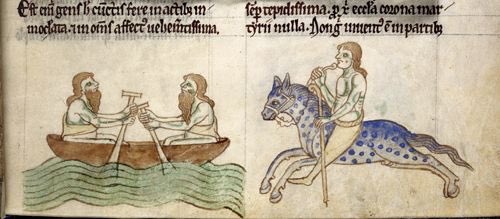 Est eni᷑ gens h̄ cunctis fere in actib; im
moderata. ⁊ in om̄s affect᷒ uehem̄tissima.
sēp tepidissima. ꝓ xͦ ecc̄sa corona mar
tyrii nulla. Non g̊ inuent᷒ ē in partib;